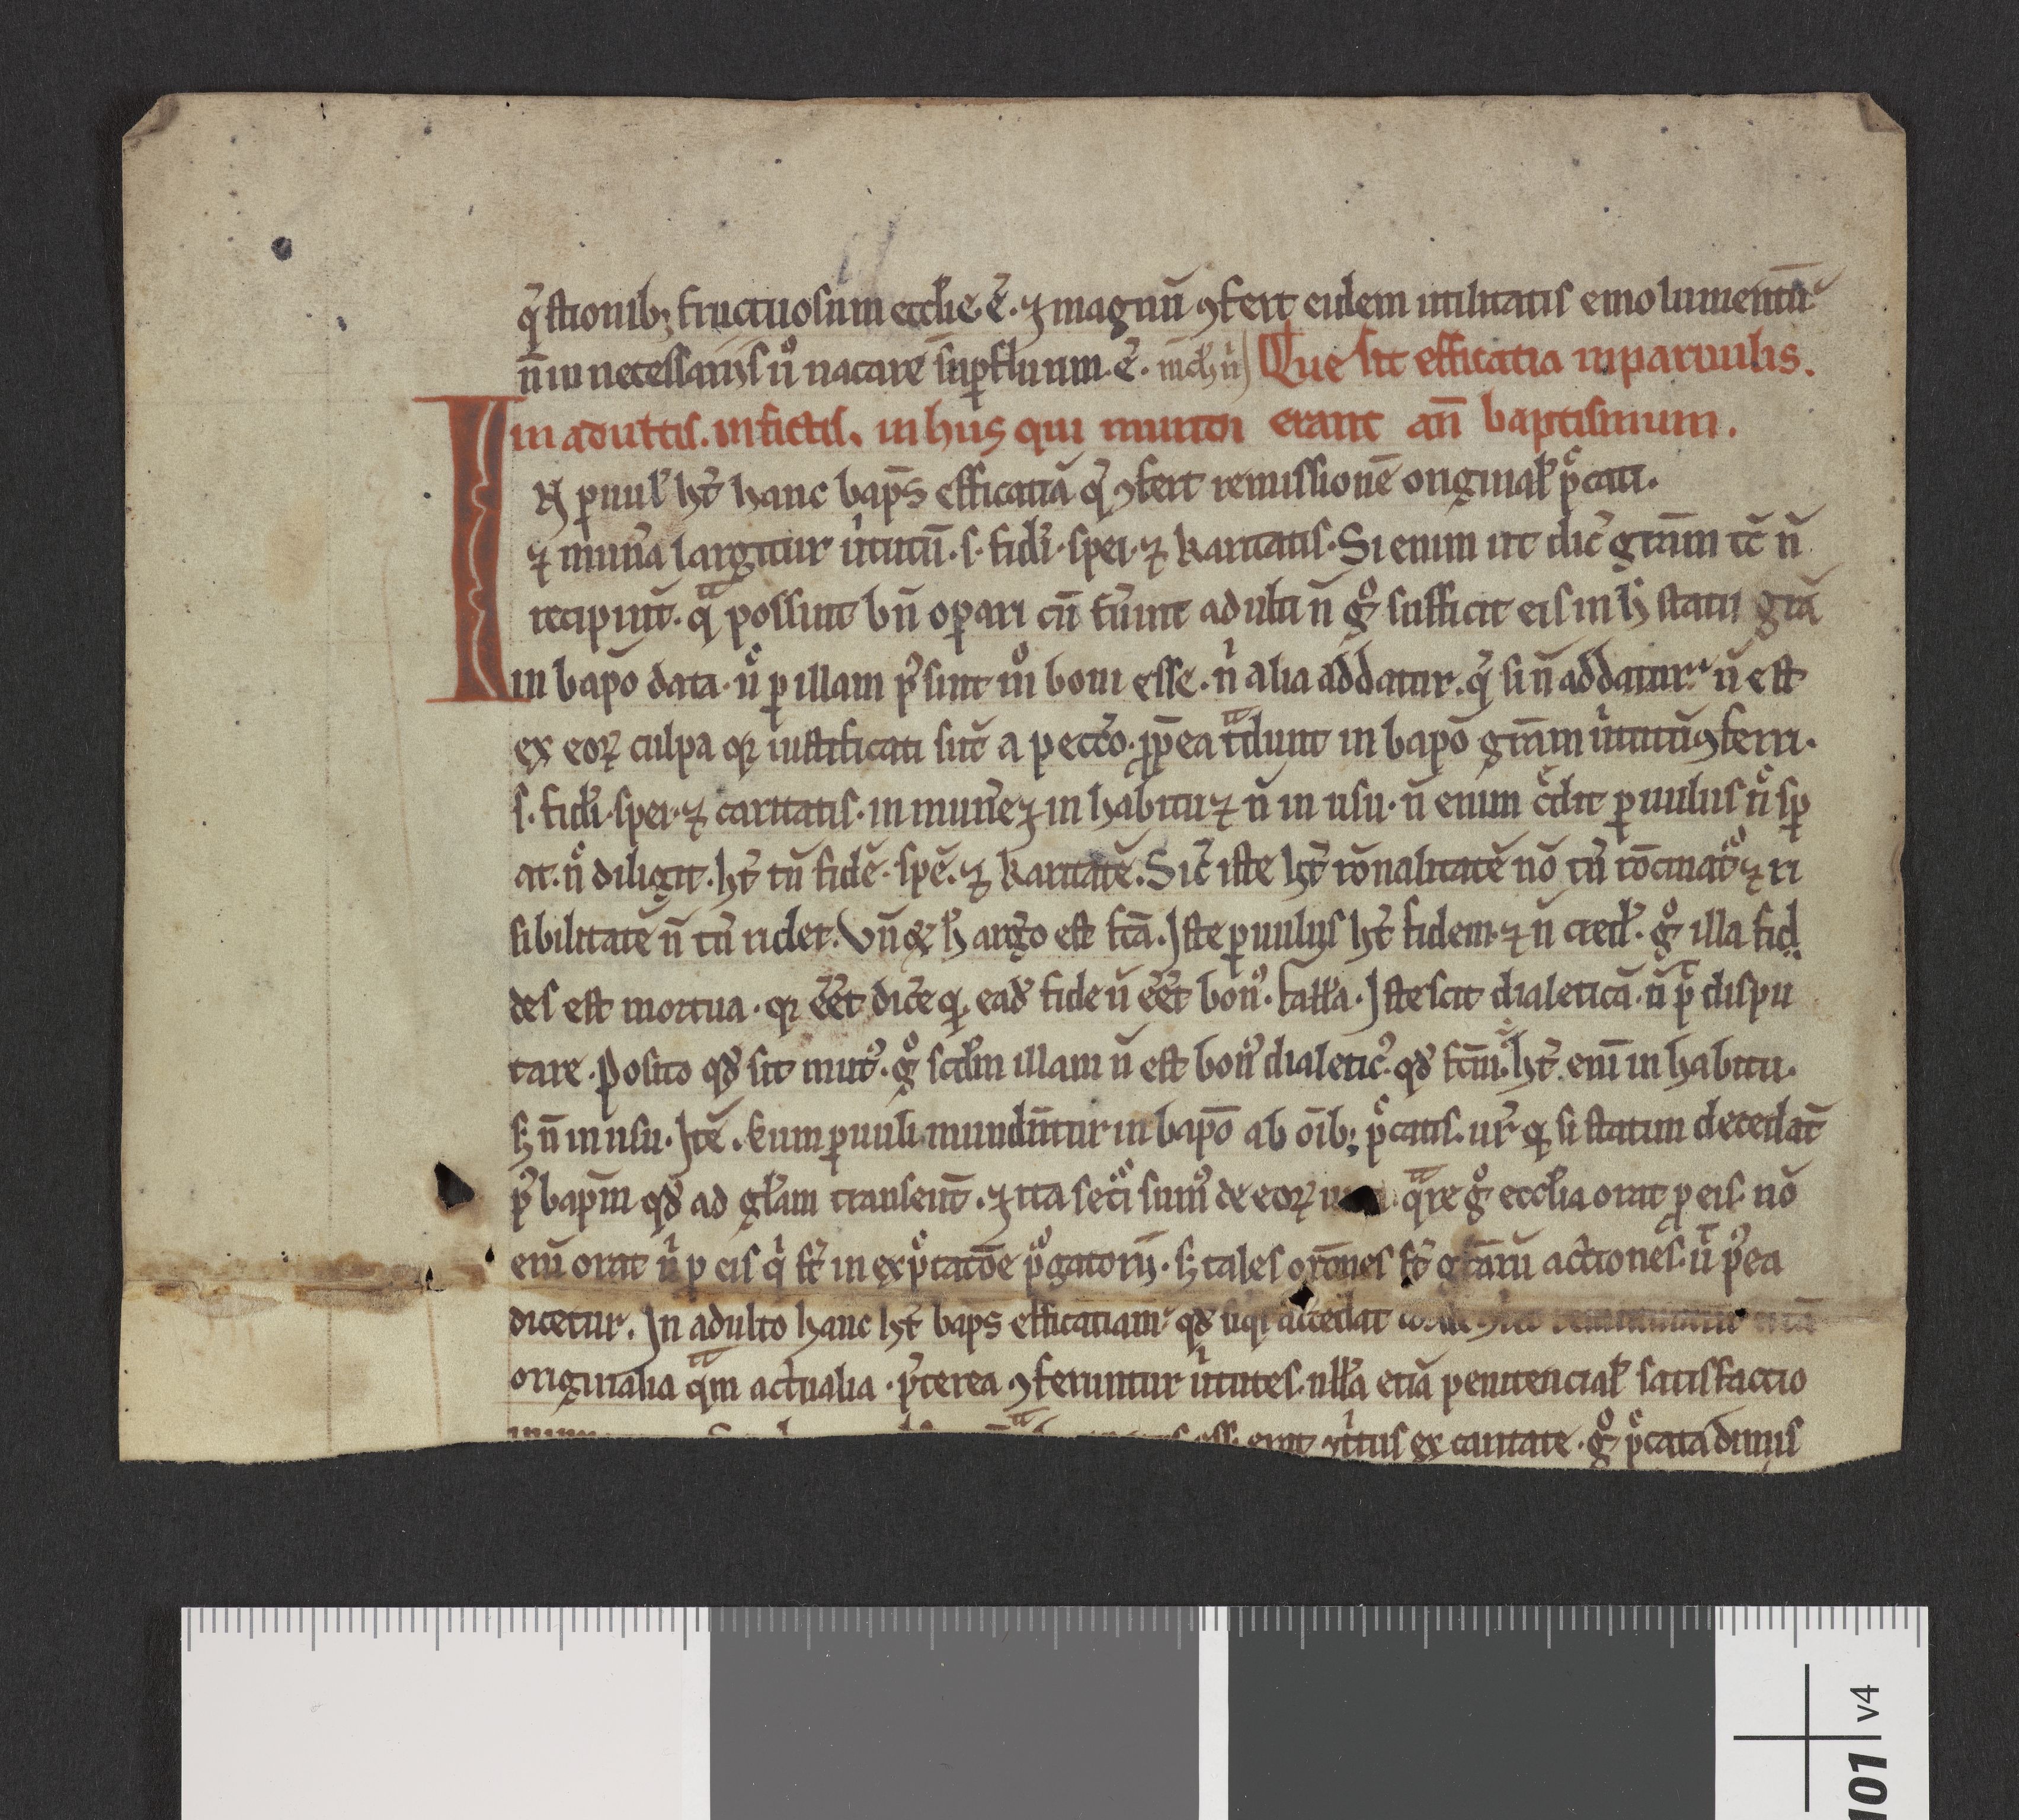 q̄stionibꝫ fructuosum eccl̄ie ē. ⁊ magnū ꝯfert eidem utilitatis emolumentū
n̄ in necessariis ů uacare suꝑfluum ē. Que sit efficatia in paruulis.
in adultis. in fictis. in hiis qui mundi erant an̄ baptismum.
IN ꝑuul' ht̄ hanc bap̄s efficatiā q̄ ꝯfert remissionē original' pͨcati.
⁊ mun̄a largitur u̍tutū .s. fidei. spei. ⁊ karitatis. Si enim ut dic̄ gr̄am tc̄ n̄
recipiūt. qᵃ possint bn̄ oꝑari cū fuīnt adulti n̄ gͦ sufficit eis in h̄ statu gr̄a
in bap̄o data. ů ꝑ illam p̄sint m̊ boni esse. n̍ alia addatur. q̄ si n̄ addatur. n̄ est
ex eoꝝ culpa qꝛ iustificati sūt a pecc̄o. ꝓp̄ea tᵃdunt in bap̄o gr̄am u̍tutū ꝯferri.
.s. fidei. spei. ⁊ caritatis. in mun̄e ⁊ in habitu ⁊ n̄ in usu. n̄ enim cͤdit ꝑuulus nͨ sꝑ
at. nͨ diligit. ht̄ tn̄ fidē. spē. ⁊ karitatē. Sic̄ iste ht̄ rōnalitatē nō tn̄ rōcinatͦ ⁊ ri
sibilitatē n̄ tn̄ ridet. Vn̄ ⁊ h̄ argͦo est fc̄a. Iste ꝑuulus ht̄ fidem. ⁊ n̄ cred̄. gͦ illa fid
des est mortua. qꝛ eēt dic̄e ꝙ eaď fide n̄ eēt bonꝰ. fall̄a. Iste scit dialeticā. n̄ pͭ dispu
tare. Posito qď sit mutꝰ. gͦ scďm illam n̄ est bonꝰ dialeticꝰ. qď fc̄m. ht̄ enī in habitu.
sꝫ n̄ in usu. Itē. kum ꝑuuli mundēntur in bap̄o ab oīb; pͨcatis. ur̄ ꝙ si statim decedāt
pꝰ bap̄m qď ad gl̄am transeūt. ⁊ ita sec̄i sumꝰ de eoꝝ qᵃre gͦ eccl̄ia orat ꝓ eis. nō
enī orat n̍ ꝑ eis q̍ st̄ in expͨtatōe pͬgatorij. sꝫ tales orōnes st̄ gr̄arū acc̄iones. ut̄ pꝰea
dicetur. In adulto hanc ht̄ baps efficatiam. qď si q̍ accedat
originalia qᵃm actualia. p̄terea ꝯferuntur u̍tutes. null̄a etiā penitencial' satisfactio
ex caritate. gͦ pͨcata dimis